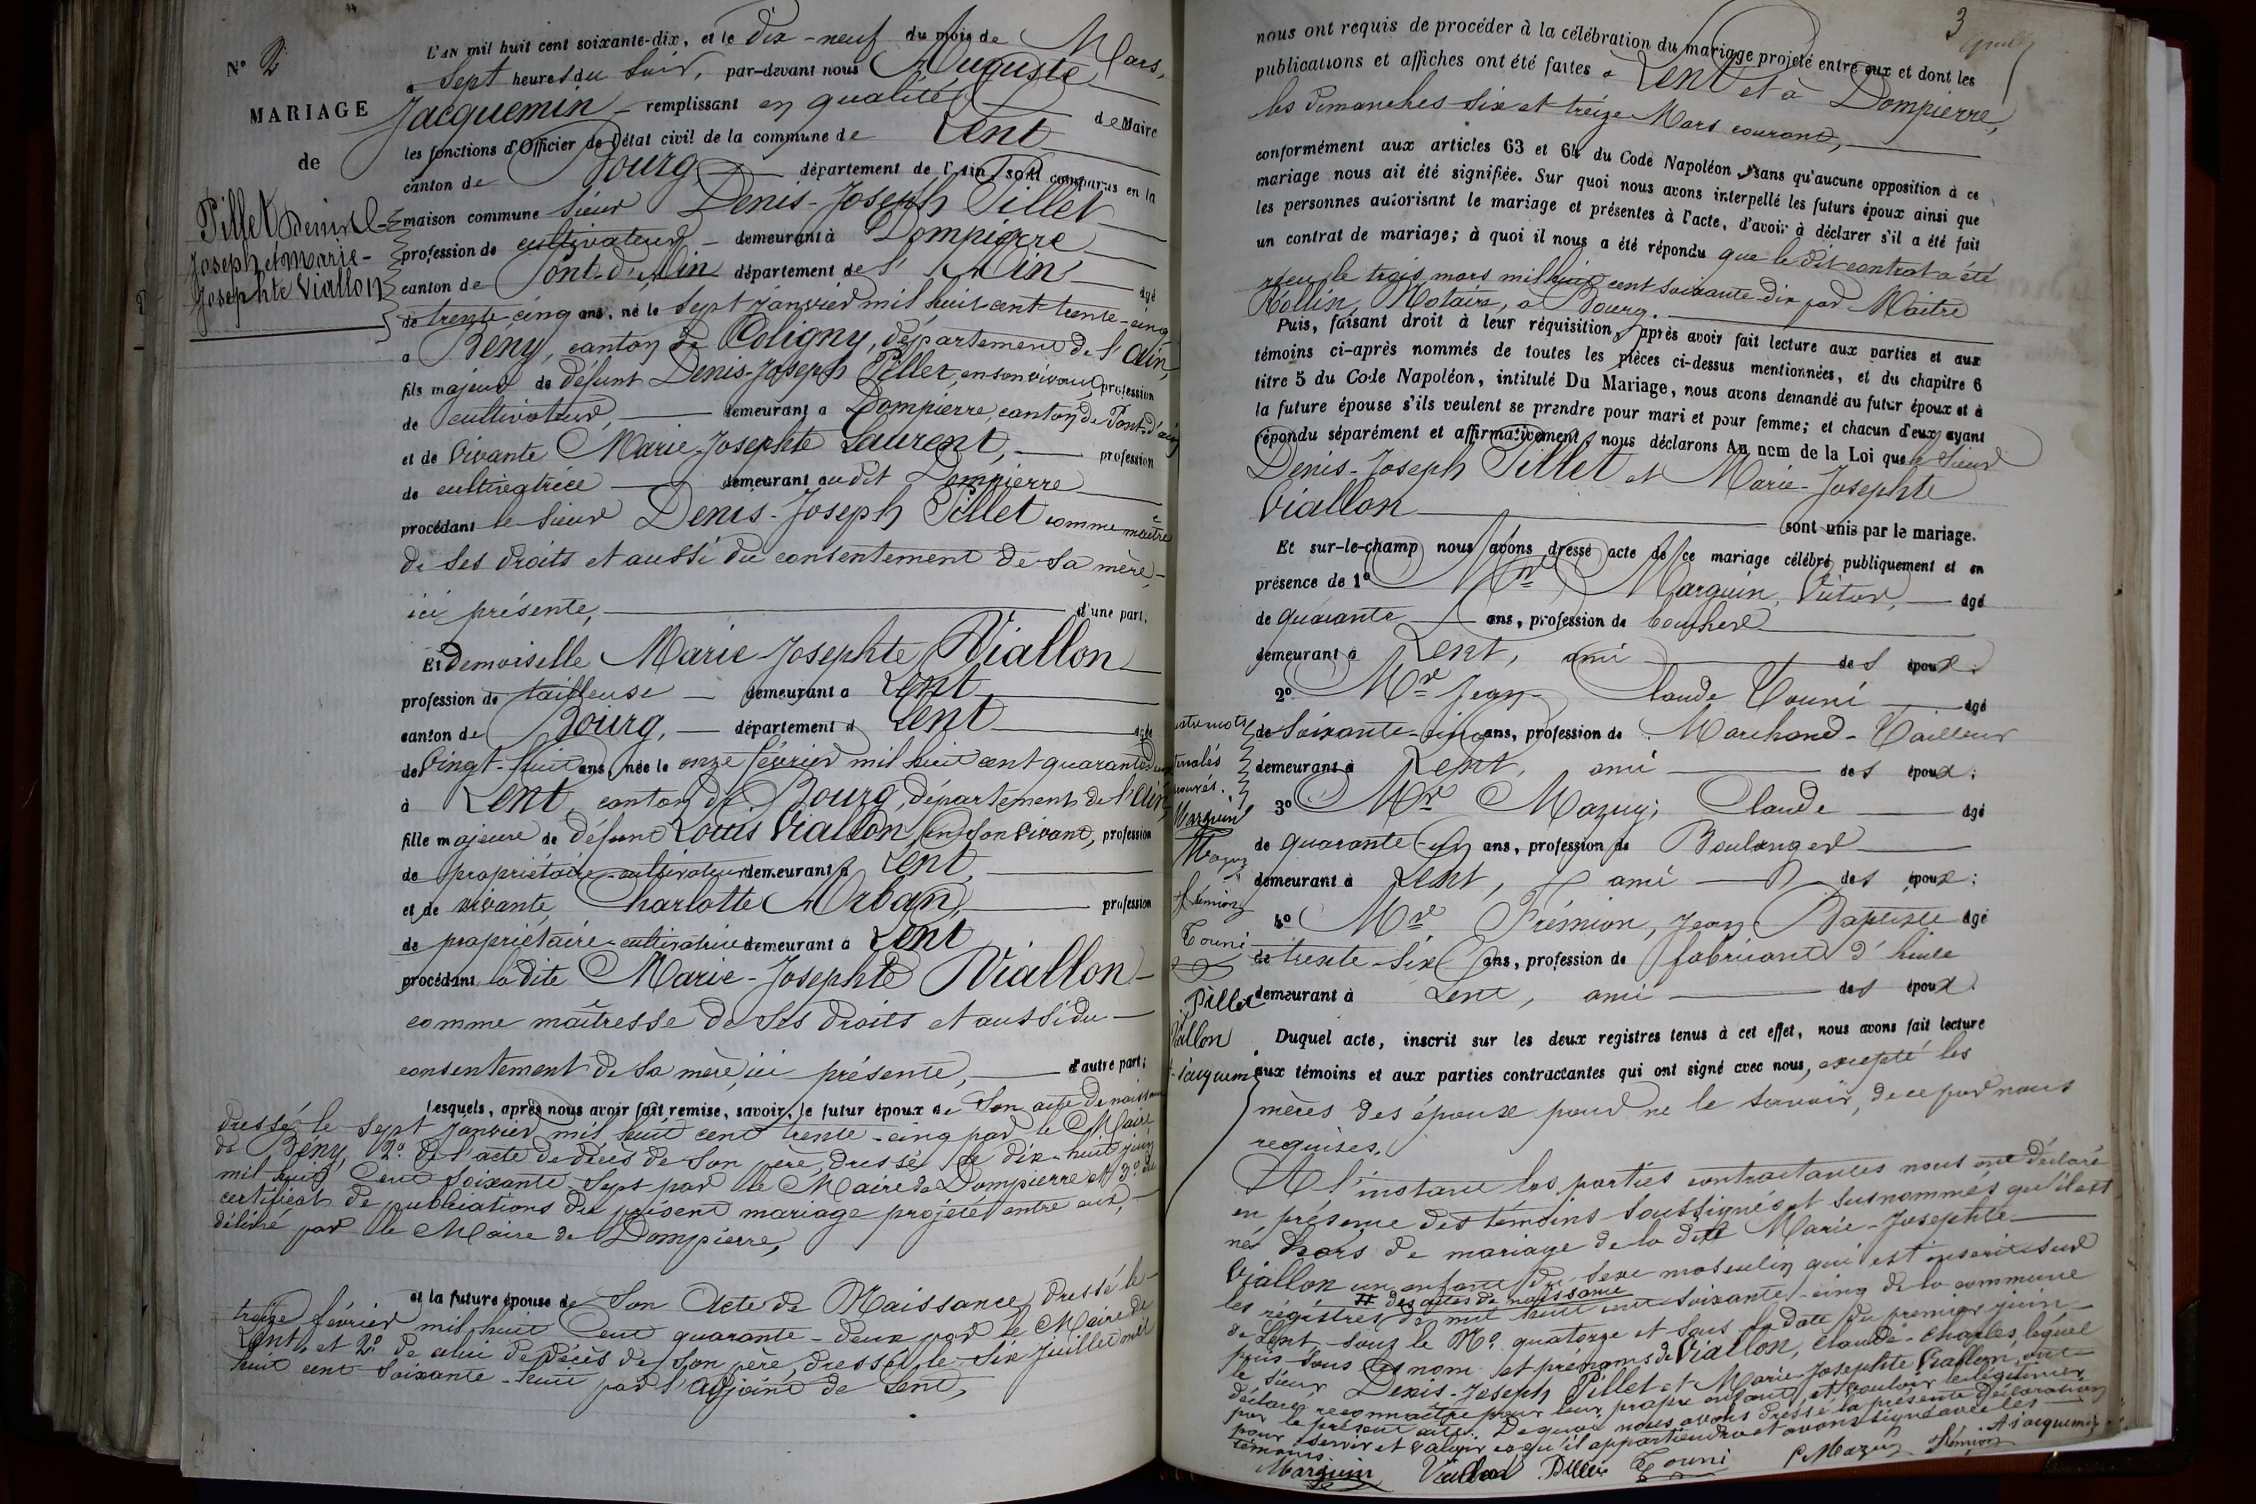 N° 2
MARIAGE
de
Pillet Denis-
Joseph et Marie-
Josephte Viallon
L'AN mil huit cent soixante-dix, et le Dix-neuf du mois de Mars,
a Sept heures du Soir, par-devant nous Auguste
Jacquemin remplissant en qualité de Maire
les fonctions d'Officier de l'état civil de la commune de Lent
canton de Bourg, département de l'Ain, sont comparus en la
maison commune Sieur Denis-Joseph Pillet
profession de cultivateur demeurant à Dompierre
canton de Pont-d'Ain département de l'Ain âgé
de trente-cinq ans, né le Sept Janvier mil huit cent trente-cinq
a Bény, canton de Coligny, département de l'Ain,
fils majeur de défunt Denis-Joseph Pillet, en son vivant, profession
de cultivateur, demeurant a Dompierre, canton de Pont-d'Ain
et de vivante Marie-Josephte Laurent, profession
de cultivatrice demeurant audit Dompierre
procédant le Sieur Denis-Joseph Pillet comme maître
de ses droits et aussi du consentement de sa mère
ici présente, d'une part,
Et demoiselle Marie Josephte Viallon
profession de tailleuse demeurant a Lent,
canton de Bourg, département d Lent âgée
de Vingt-huit ans, née le onze février mil huit cent quarante deux
à Lent, canton de Bourg, département de l'Ain,
fille majeure de défunt Louis Viallon, en son vivant, profession
de propriétaire-cultivateur demeurant à Lent,
et de vivante Charlotte Arban, profession
de propriétaire-cultivatrice demeurant à Lent
procédant la dite Marie-Josephte Viallon
comme maîtresse de ses droits et aussi du
consentement de sa mère, ici présente, d'autre part;
Lesquels, après nous avoir fait remise, savoir, le futur époux de Son acte de naissance
dressé le sept Janvier mil huit cent trente-cinq par le Maire
de Bény, 2° de l'acte de décès de son père, dressé le dix-huit juin
mil huit Cent soixante-sept par le Maire de Dompierre et 3° du
certificat de publications du présent mariage projeté entre eux,
délivré par le Maire de Dompierre,
et la future épouse de Son Acte de Naissance, dressé le
treize février mil huit Cent quarante-deux par le Maire de
Lent, et 2° de celui de décès de son père, dressé le Six Juillet mil
huit cent soixante- par l'Adjoint de Lent,
3
nous ont requis de procéder à la célébration du mariage projeté entre eux et dont les
publications et affiches ont été faites à Lent et à Dompierre,
les dimanches six et treize Mars courant,
conformément aux articles 63 et 64 du Code Napoléon, sans qu'aucune opposition à ce
mariage nous ait été signifiée. Sur quoi nous avons interpellé les futurs époux ainsi que
les personnes autorisant le mariage et présentes à l'acte, d'avoir à déclarer s'il a été fait
un contrat de mariage; à quoi il nous a été répondu que le dit contrat a été
reçu le trois mars mil huit cent soixante-dix par Maître
Rollin, Notaire, à Bourg.
Puis, faisant droit à leur réquisition, après avoir fait lecture aux parties et aux
témoins ci-après nommés de toutes les pièces ci-dessus mentionnées, et du chapitre 6
titre 5 du Code Napoléon, intitulé Du Mariage, nous avons demandé au futur époux et à
la future épouse s'ils veulent se prendre pour mari et pour femme; et chacun d'eux ayant
répondu séparément et affirmativement, nous déclarons Au nom de la Loi que le Sieur
Denis-Joseph Pillet et Marie-Josephte
Viallon sont unis par le mariage.
Et sur-le-champ nous avons dressé acte de ce mariage célébré publiquement et en
présence de 1° Mr Marguin, Victor, âgé
de quarante ans, profession de boucher
demeurant à Lent, ami des époux.
2° Mr Jean-Claude Touni âgé
de Soixante-cinq ans, profession de Marchand-Tailleur
demeurant à Lent, ami des époux;
3° Mr Mazuy, Claude âgé
de quarante-un ans, profession de Boulanger
demeurant à Lent, ami des époux:
4° Mr Frémion, Jean Baptiste âgé
de trente-six ans, profession de fabricant d'huile
demeurant à Lent, ami des époux.
Marguin
Mazuy
Frémion
Touni
Pillet
Viallon
Jacquemin
Duquel acte, inscrit sur les deux registres tenus à cet effet, nous avons fait lecture
aux témoins et aux parties contractantes qui ont signé avec nous, excepté les
mères des époux pour ne le savoir, de ce par nous
requises.
A l'instant les parties contractantes nous ont déclaré
en présence des témoins soussignés et susnommés qu'il est
né hors de mariage de la dite Marie-Josephte
Viallon un enfant du Sexe masculin qui est inscrit sur
les régistres des actes de naissance de mil huit cent soixante-cinq de la commune
de Lent sous le N° quatorze et sous la date du premier juin
puis sous les nom et prénoms de Viallon, Claude-Charles, lequel
le Sieur Denis-Joseph Pillet et Marie-Josephte Viallon ont
déclaré reconnaître pour leur propre enfant et vouloir le légitimer
par le présent acte. De quoi nous avons dressé la présente déclaration
pour servir et valoir ce qu'il appartiendra et avons signé avec les
témoins.
Marguin Viallon Pillet Touni C. Mazuy Frémion A Jacquemin